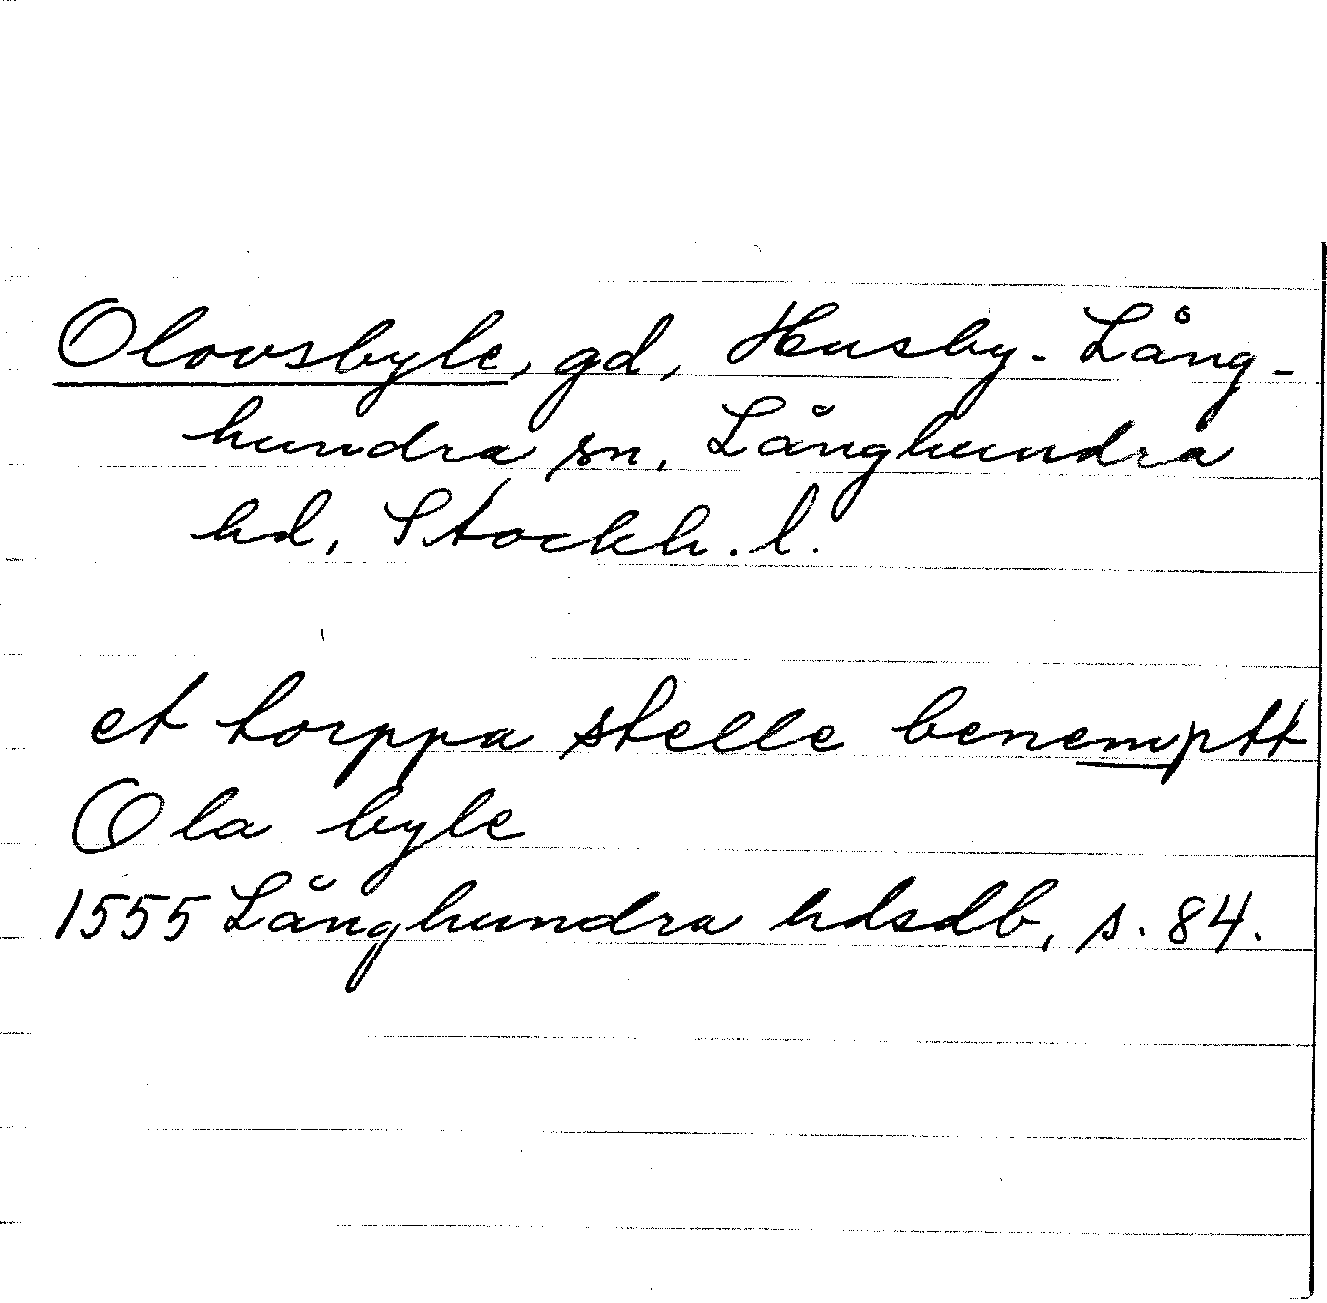 Olovsbyle, gd, Husby-Lång-
hundra sn, Långhundra
hd, Stockh. l.
et torppa stelle benemptt
Ola byle
1555 Långhundra hdsdb, s. 84.